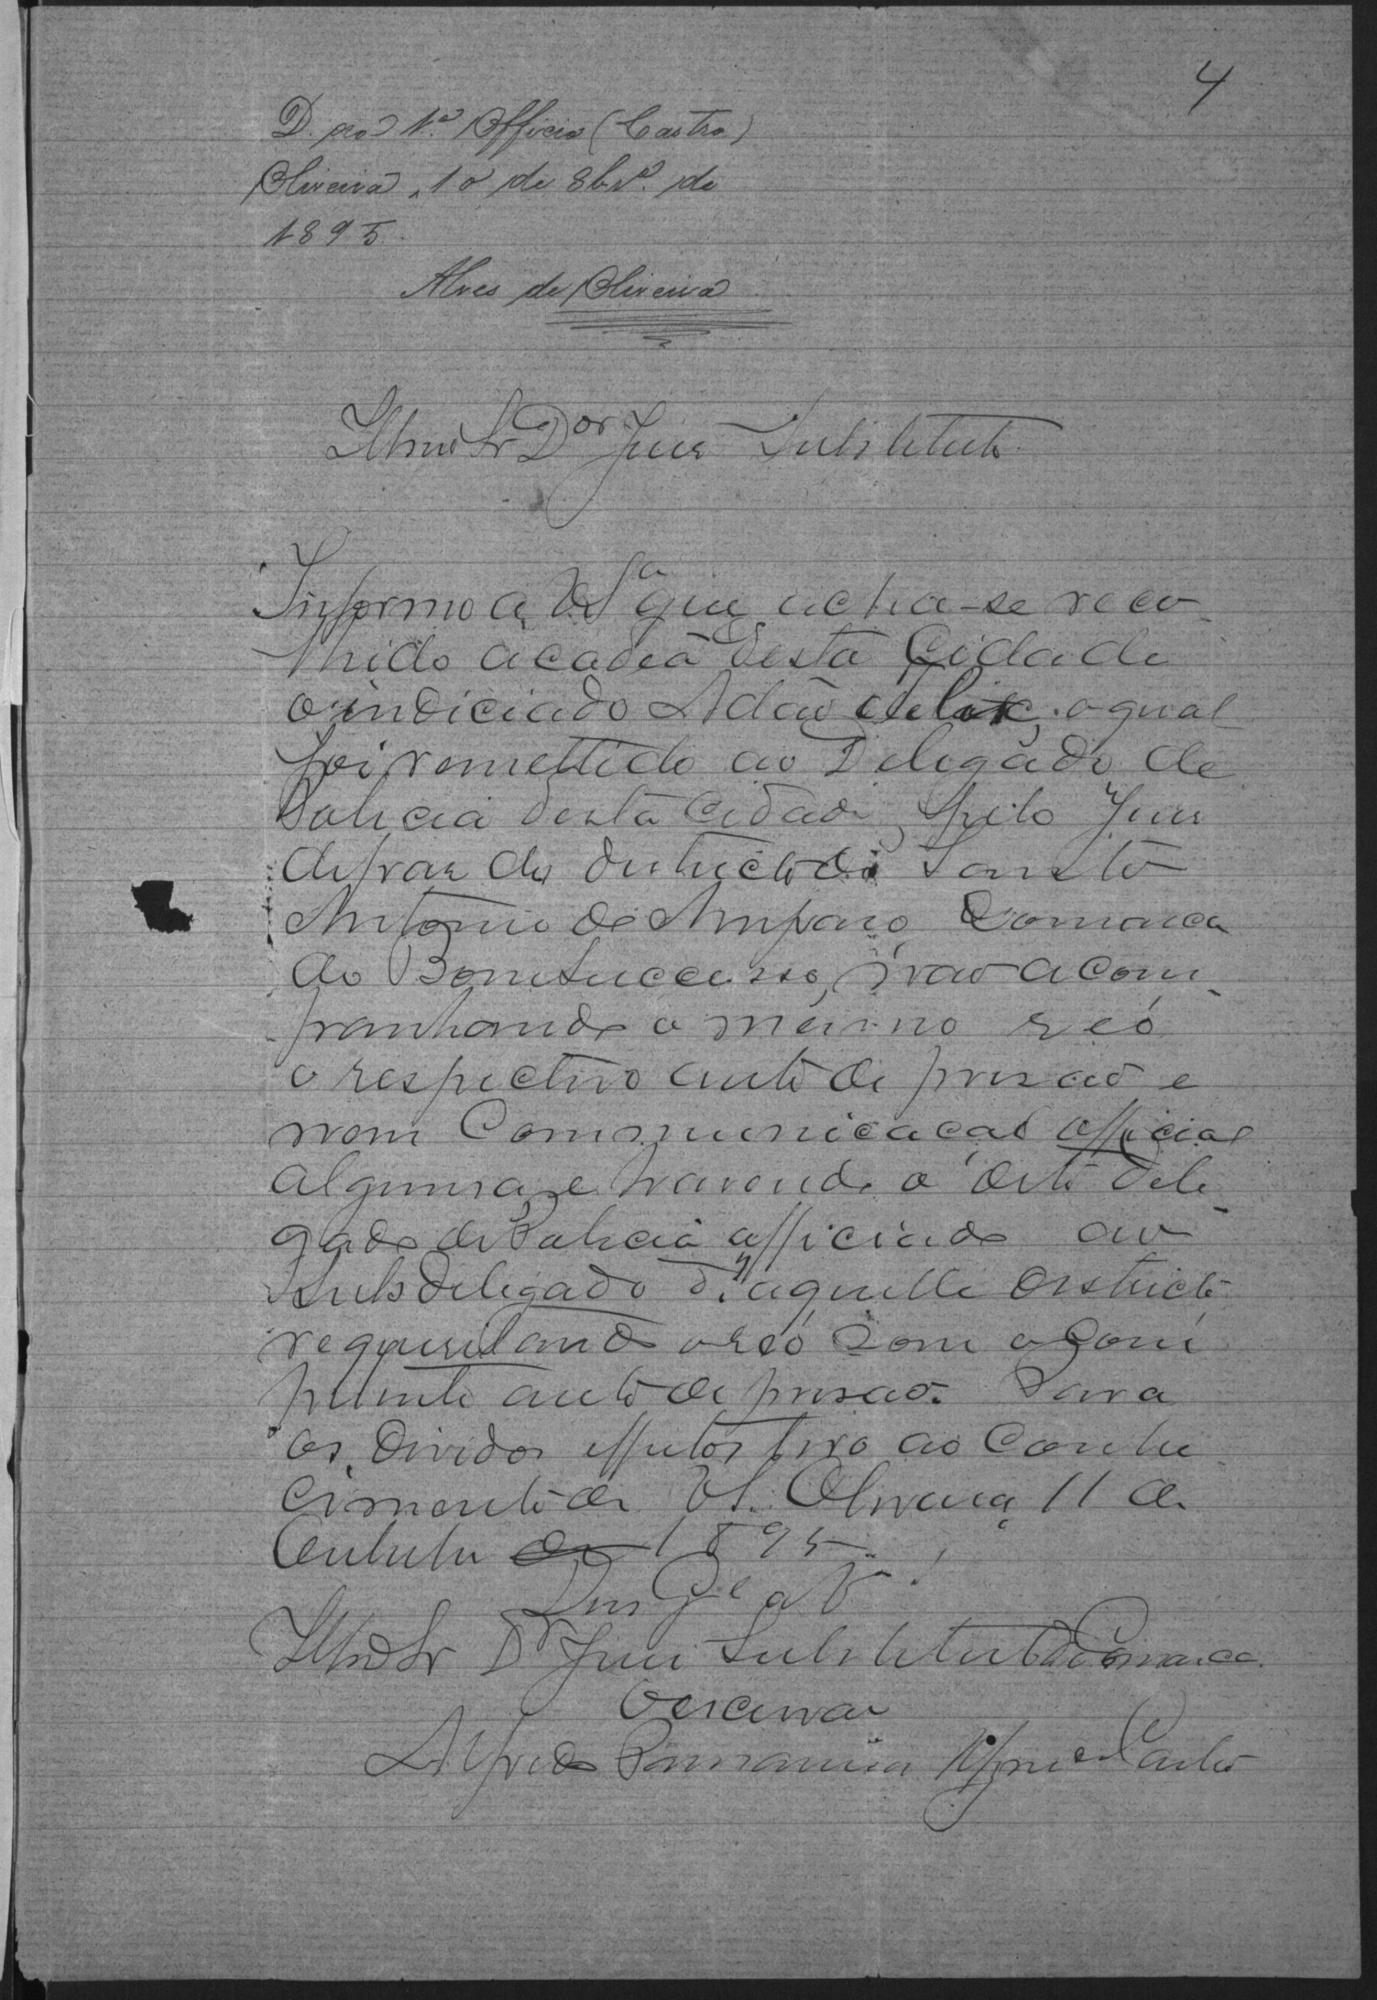 4
D. ao 1.º Officio (Castro)
Oliveira, 10 de 8br.º de
1895.
Alves de Oliveira
Illmo Sr Dor Juis Substituto
Informo a VSª que acha-se reco
lhido a cadea desta Cidade
o indiciado Adão Felix, o qual
foi remettido ao Delegado de
Policia desta Cidade, pelo Juis
de pas do districto de Santo
Antonio do Amparo, Comarca
do Bomsuccesso, não acom
panhando o mesmo reó
o respectivo auto de prisão e
nem Communicação official
alguma, e havendo o dito Dele
gado de Policia officiado ao
Subdelegado d'aquelle districto
requisitando o reó com o Com
petente auto de prisão. Para
os dividos effeitos levo ao Conhe
cimento de VS. Oliveira, 11 de
Outubro de 1895.
Deus Ge a V
Illmo Sr Dr Juis Substituto da Comarca
O escrivão
Alfredo